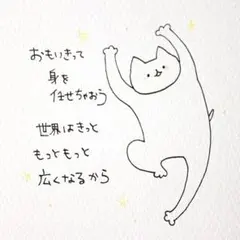 おもいきって
身を
任せちゃおう
世界はきっと
もっともっと
広くなるから